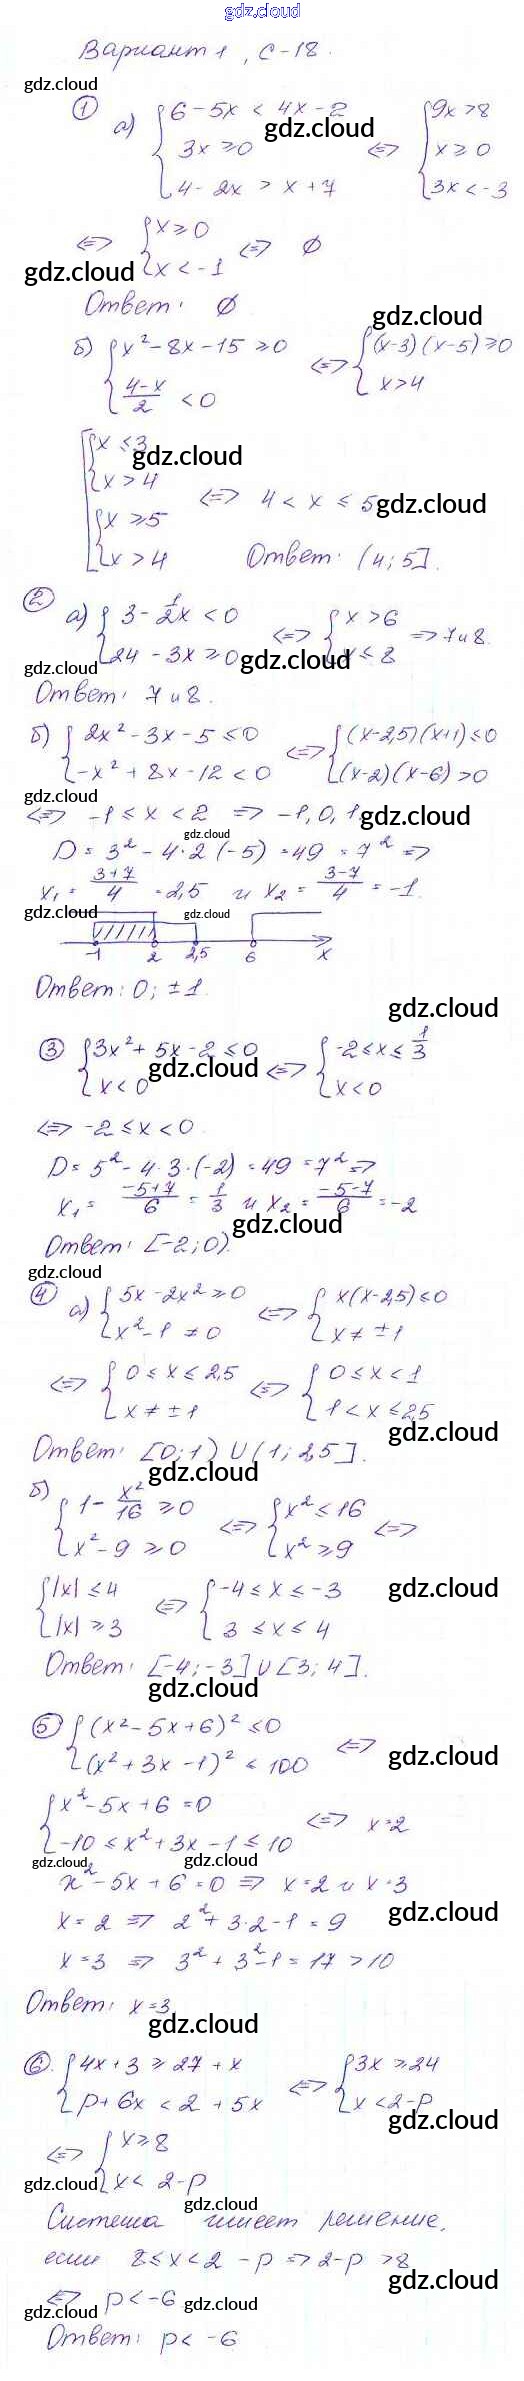 gdz.cloud
Вариант 1, С-18.
gdz.cloud
① а) { 6 - 5x < 4x - 2 gdz.cloud { 9x > 8
3x ≥ 0 <=> x ≥ 0
4 - 2x > x + 7 3x < -3
<=> { x ≥ 0 <=> ∅
gdz.cloud x < -1
Ответ: ∅
gdz.cloud
б) { x² - 8x - 15 ≥ 0 <=> { (x-3)(x-5) ≥ 0
(4-x)/2 < 0 x > 4
[ { x ≤ 3 gdz.cloud
x > 4 <=> 4 < x ≤ 5 gdz.cloud
{ x ≥ 5
x > 4 Ответ: (4; 5].
② а) { 3 - 1/2x < 0 <=> { x > 6 => 7 и 8.
gdz.cloud 24 - 3x ≥ 0 gdz.cloud x ≤ 8
Ответ: 7 и 8.
б) { 2x² - 3x - 5 ≤ 0 <=> { (x-2,5)(x+1) ≤ 0
-x² + 8x - 12 < 0 (x-2)(x-6) > 0
gdz.cloud
<=> -1 ≤ x < 2 => -1, 0, 1, gdz.cloud
gdz.cloud
D = 3² - 4·2(-5) = 49 = 7² =>
x₁ = (3+7)/4 = 2,5 и x₂ = (3-7)/4 = -1.
gdz.cloud gdz.cloud
-1 2 2,5 6 x
Ответ: 0; ±1.
gdz.cloud
③ { 3x² + 5x - 2 ≤ 0 <=> { -2 ≤ x ≤ 1/3
x < 0 gdz.cloud x < 0
<=> -2 ≤ x < 0.
D = 5² - 4·3·(-2) = 49 = 7² =>
x₁ = (-5+7)/6 = 1/3 и x₂ = (-5-7)/6 = -2
gdz.cloud
Ответ: [-2; 0).
gdz.cloud
④ а) { 5x - 2x² ≥ 0 <=> { x(x-2,5) ≤ 0
x² - 1 ≠ 0 x ≠ ±1
<=> { 0 ≤ x ≤ 2,5 <=> { 0 ≤ x < 1
x ≠ ±1 1 < x ≤ 2,5
gdz.cloud
Ответ: [0; 1) U (1; 2,5].
gdz.cloud
б) { 1 - x²/16 ≥ 0 <=> { x² ≤ 16 <=>
x² - 9 ≥ 0 x² ≥ 9
{ |x| ≤ 4 <=> { -4 ≤ x ≤ -3 gdz.cloud
|x| ≥ 3 3 ≤ x ≤ 4
Ответ: [-4; -3] U [3; 4].
gdz.cloud
⑤ { (x² - 5x + 6)² ≤ 0 <=>
(x² + 3x - 1)² ≤ 100 gdz.cloud
{ x² - 5x + 6 = 0 <=> x = 2
-10 ≤ x² + 3x - 1 ≤ 10
gdz.cloud gdz.cloud
x² - 5x + 6 = 0 => x = 2 и x = 3
x = 2 => 2² + 3·2 - 1 = 9 gdz.cloud
x = 3 => 3² + 3² - 1 = 17 > 10
Ответ: x = 3
gdz.cloud
⑥. { 4x + 3 ≥ 27 + x <=> { 3x ≥ 24
p + 6x < 2 + 5x x < 2 - p
gdz.cloud
<=> { x ≥ 8
gdz.cloud x < 2 - p
gdz.cloud
Система имеет решение,
если 8 ≤ x < 2 - p => 2 - p > 8
gdz.cloud
<=> p < -6 gdz.cloud
gdz.cloud
Ответ: p < -6
gdz.cloud gdz.cloud